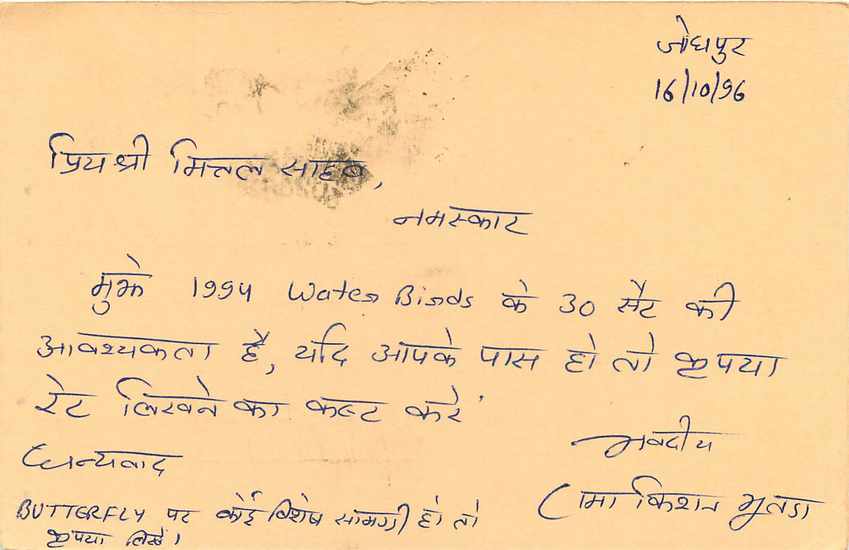 जोधपुर
16/10/96
प्रिय श्री मित्तल साहब,
नमस्कार
मुझे 1994 Water Birds के 30 सैट की
आवश्यकता है, यदि आपके पास हो तो कृपया
रेट लिखने का कष्ट करें
धन्यवाद
भवदीय
BUTTERFLY पर कोई विशेष सामग्री हो तो
कृपया लिखें।
रामा किशन भूतडा